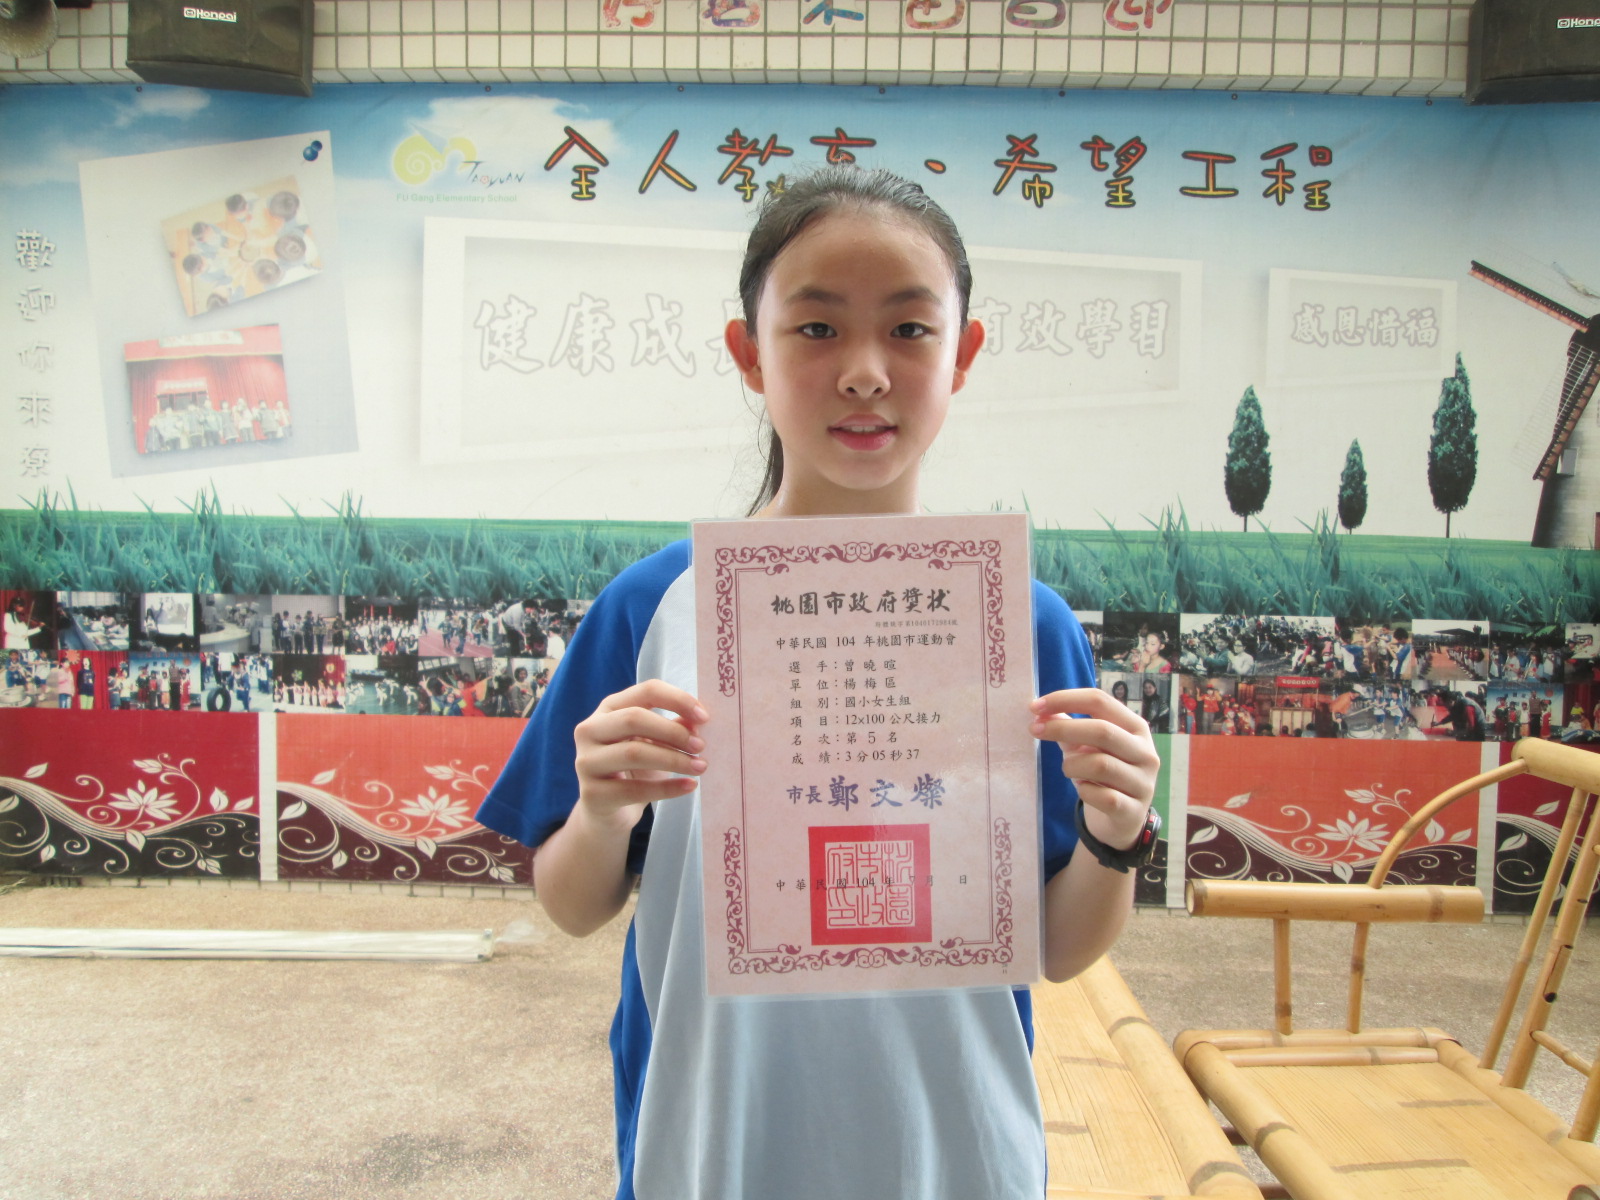 Honpai
Honpai
全人教育、希望工程
TAOYUAN
FU Gang Elementary School
歡迎你來
健康成長
有效學習
感恩惜福
桃園市政府獎狀
中華民國 104 年桃園市運動會
選 手：曾曉暄
單 位：楊梅區
組 別：國小女生組
項 目：12×100 公尺接力
名 次：第 5 名
成 績：3 分 05 秒 37
市長 鄭文燦
中華民國 104 年 7 月 日